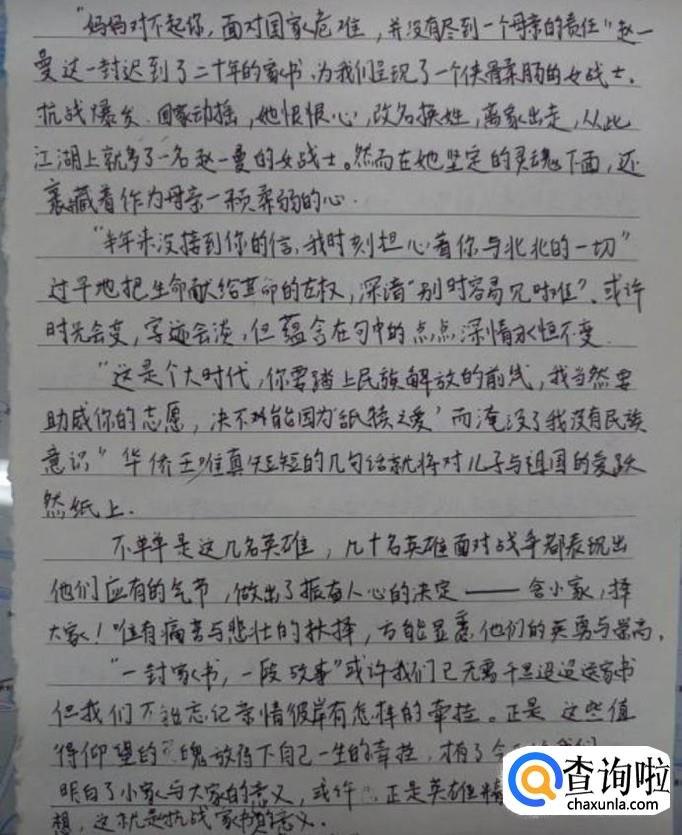 "妈妈对不起你,面对国家危难,并没有尽到一个母亲的责任"赵一
曼这一封迟到了二十年的家书,为我们呈现了一个侠骨柔肠的女战士。
抗战爆发、国家动摇,她恨恨心,改名换姓,离家出走,从此
江湖上就多了一名赵一曼的女战士。然而在她坚定的灵魂下面,还
裹藏着作为母亲一颗柔弱的心.
"半年来没接到你的信,我时刻担心着你与北北的一切"
过早地把生命献给革命的左权,深谙"别时容易见时难"、或许
时光会变,字迹会淡,但蕴含在句中的点点深情永恒不变.
"这是个大时代,你要踏上民族解放的前线,我当然要
助成你的志愿,决不能因为'舐犊之爱'而淹没了我没有民族
意识"华侨王唯真短短的几句话就将对儿子与祖国的爱跃
然纸上.
不单单是这几名英雄,几十名英雄面对战争都表现出
他们应有的气节,做出了振奋人心的决定——舍小家,择
大家!唯有痛苦与悲壮的抉择,方能显患他们的英勇与崇高。
"一封家书,一段故事"或许我们已无需千里迢迢送家书
但我们不能忘记亲情彼岸有怎样的牵挂。正是这些值
得仰望的 魂放得下自己一生的牵挂,才有了今
明白了小家与大家的意义,或许 正是英雄精
想,这就是抗战家书的意义.
查询啦
chaxunla.com